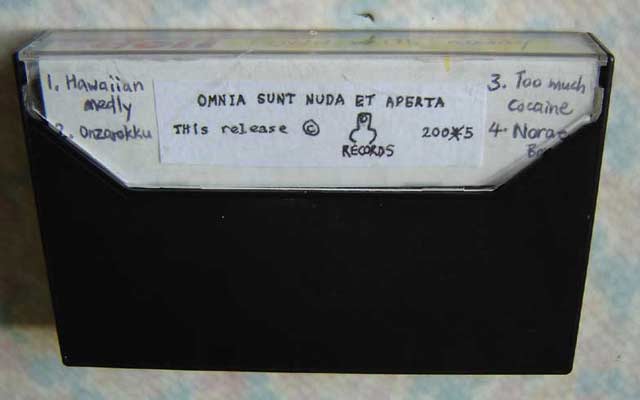 1. Hawaiian
medly
2. Onzarokku
OMNIA SUNT NUDA ET APERTA
THis release ©
RECORDS
200*5
3. Too much
cocaine
4. Nora